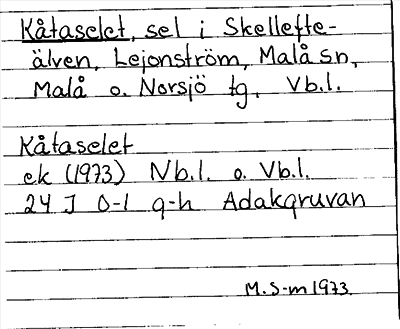 Kåtaselet, sel i Skellefte-
älven, Lejonström, Malå sn,
Malå o. Norsjö tg, Vb.l.
Kåtaselet
ek (1973) Nb.l. o. Vb.l.
24 J 0-1 g-h Adakgruvan
M.S-m 1973